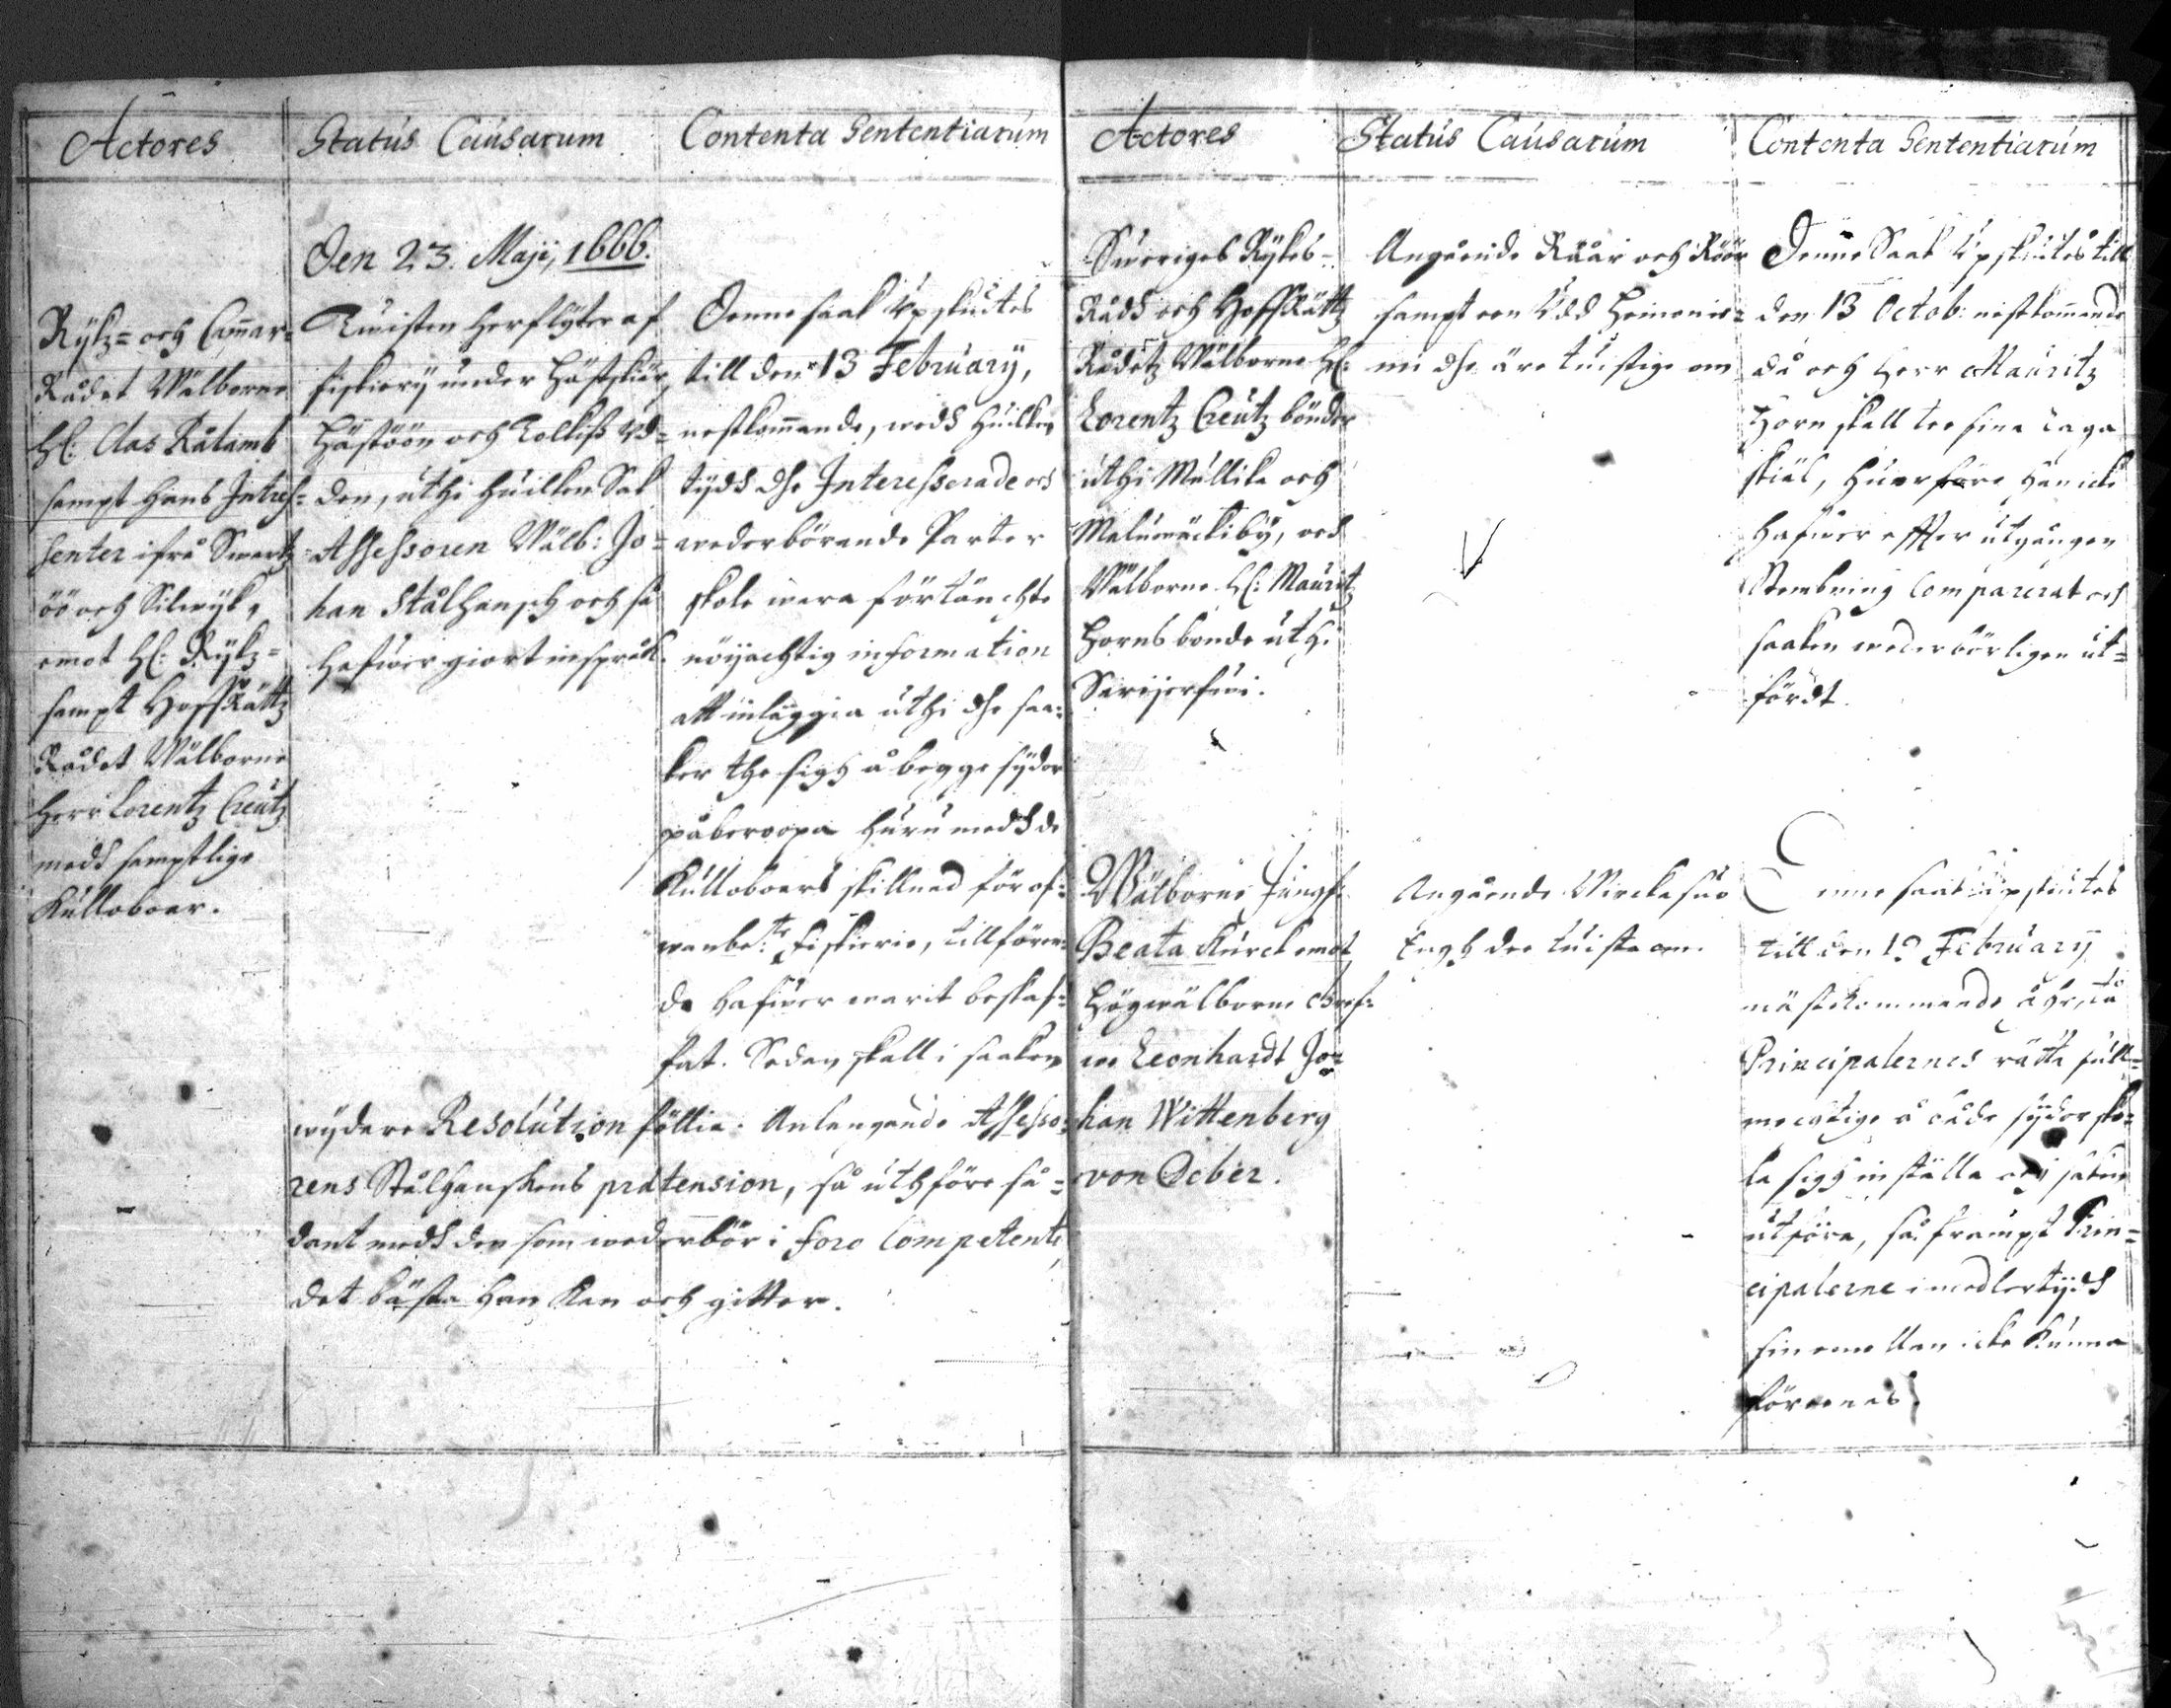 Actores
Status Causarum
Contenta Sententiarum
Den 23. Maji, 1666.
Rykz= och Cam̄ar=
Rådet Wälborne
H: Clas Rålamb
sampt hans Intres=
senter ifrå Swartz
öö och Silwijk,
emot H: Rykz=
sampt HoffRättz
Rådet Wälborne
Herr Lorentz Creutz
medh samptlige
Kulloboar.
Twisten herflyter af
fiskiery under Hästskiär,
Hästöön och Kolkiss Vd=
den, uthi huilken Sak
Assessoren Wälb: Jo=
han Stålhansch och så
hafwer giort inspråk.
Denne saak Upskiutes
till den 13 February,
nestkom̄ande, wedh huilken
tijdh dhe Interesserade och
wederbörande Parter
skole wara förtänchte
nöijachtig information
att inläggia uthi dhe saa=
ker the sigh å begge sijdor
påberoopa huru medh de
Kulloboers skillnad för of=
wanbe:te fiskierie, tillfören=
de hafwer warit beskaf=
fat. Sedan skall i saaken
wijdare Resolution föllia. Anlangande Assesso=
rens Stålhanskens prætension, så uthföre så=
dant medh den som wederbör i foro Competente,
det bästa han kan och gitter.
Actores
Status Causarum
Contenta Sententiarum
Sweriges Rykes=
Rådh och HoffRättz
Rådetz Wälborne H:
Lorentz Creutz bönder
uthi Mullila och
Malumäckiby, och
Wälborne H: Mauritz
Horns bonde uthi
Sarijerfwi.
Angående Råår och Röör
sampt een Udd Heinonie=
mi dhe äre twistige om
Denne Saak Upskiutes till
den 13 Octob: nestkom̄ande
då och Herr Mauritz
Horn skall tee sina laga
skiäl, huarföre han icke
hafwer effter utgången
Stembning Comparerat och
saaken wederbörligen ut=
fördt.
Wälborne Jungf:
Beata Kurck emot
Högwälborne Gref=
we Leonhardt Jo=
han Wittenberg
von Deber.
Angående Wirckesuo
Engh dee twista om.
Denne saak upskiutes
till den 13 February
nästkommande åhr, då
Principalernes rätta full=
mechtige å både sijdor sko=
la sigh inställa och saken
utföra, så frampt Prin=
cipalerne i medlertijdh
sin emellan icke kunna
förenas.